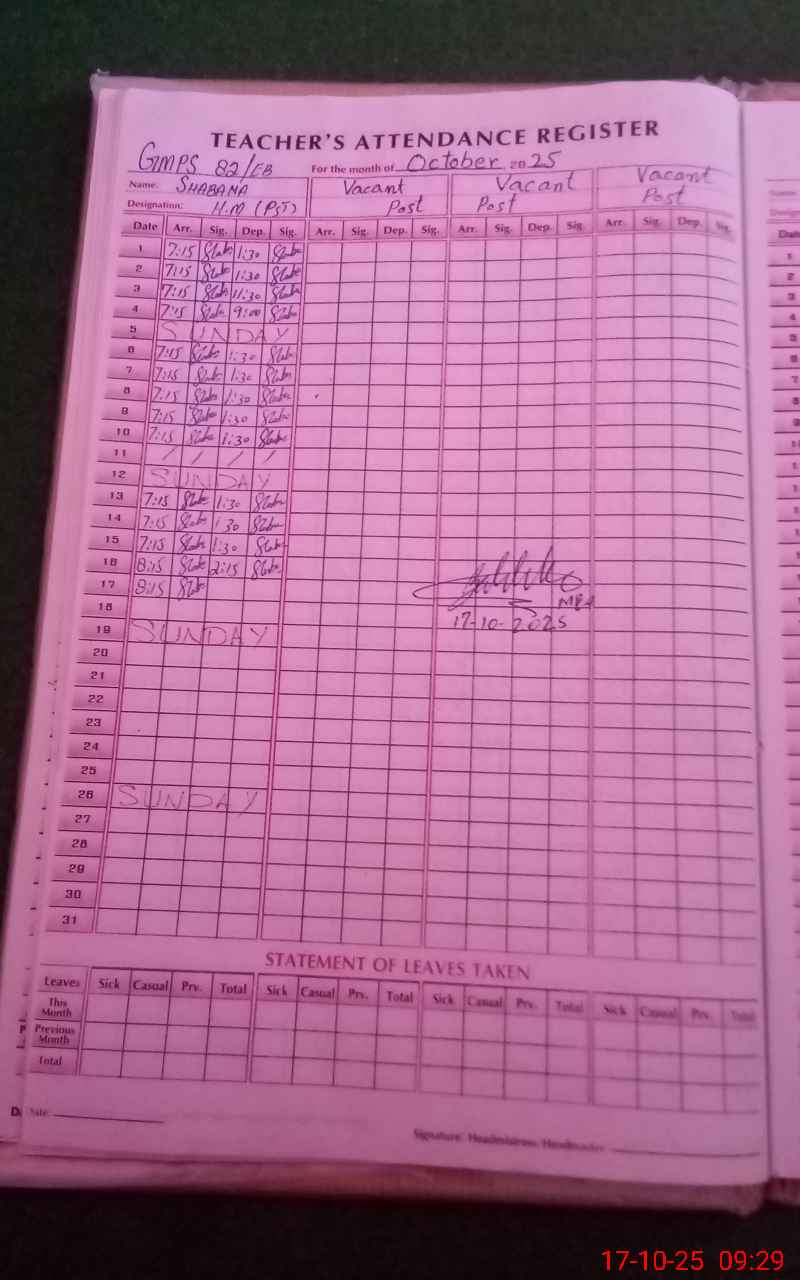 TEACHER'S ATTENDANCE REGISTER
GMPS 82/EB For the month of October 2025
Name: SHABANA Vacant Vacant Vacant
Designation: H.M (PST) Post Post Post
Date Arr. Sig. Dep. Sig. Arr. Sig. Dep. Sig. Arr. Sig. Dep. Sig. Arr. Sig. Dep. Sig.
1 7:15 1:30
2 7:15 1:30
3 7:15 11:30
4 7:15 9:00
5 SUNDAY
6 7:15 1:30
7 7:15 1:30
8 7:15 1:30
9 7:15 1:30
10 7:15 1:30
11 / / / /
12 SUNDAY
13 7:15 1:30
14 7:15 1:30
15 7:15 1:30
16 8:15 2:15
17 8:15
18
19 SUNDAY
17-10-2025
20
21
22
23
24
25
26 SUNDAY
27
28
29
30
31
STATEMENT OF LEAVES TAKEN
Leaves Sick Casual Prv. Total Sick Casual Prv. Total Sick Casual Prv. Total Sick Casual Prv. Total
This Month
Previous Month
Total
Date:
Signature: Headmistress/Headmaster
17-10-25 09:29